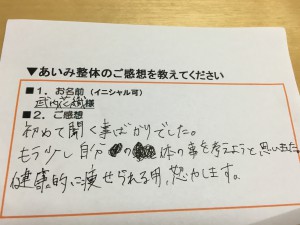 ▼あいみ整体のご感想を教えてください
■1．お名前（イニシャル可）
武内花織様
■2．ご感想
初めて聞く事ばかりでした。
もう少し自分の体の事を考えようと思いました。
健康的に痩せられる用、努力します。